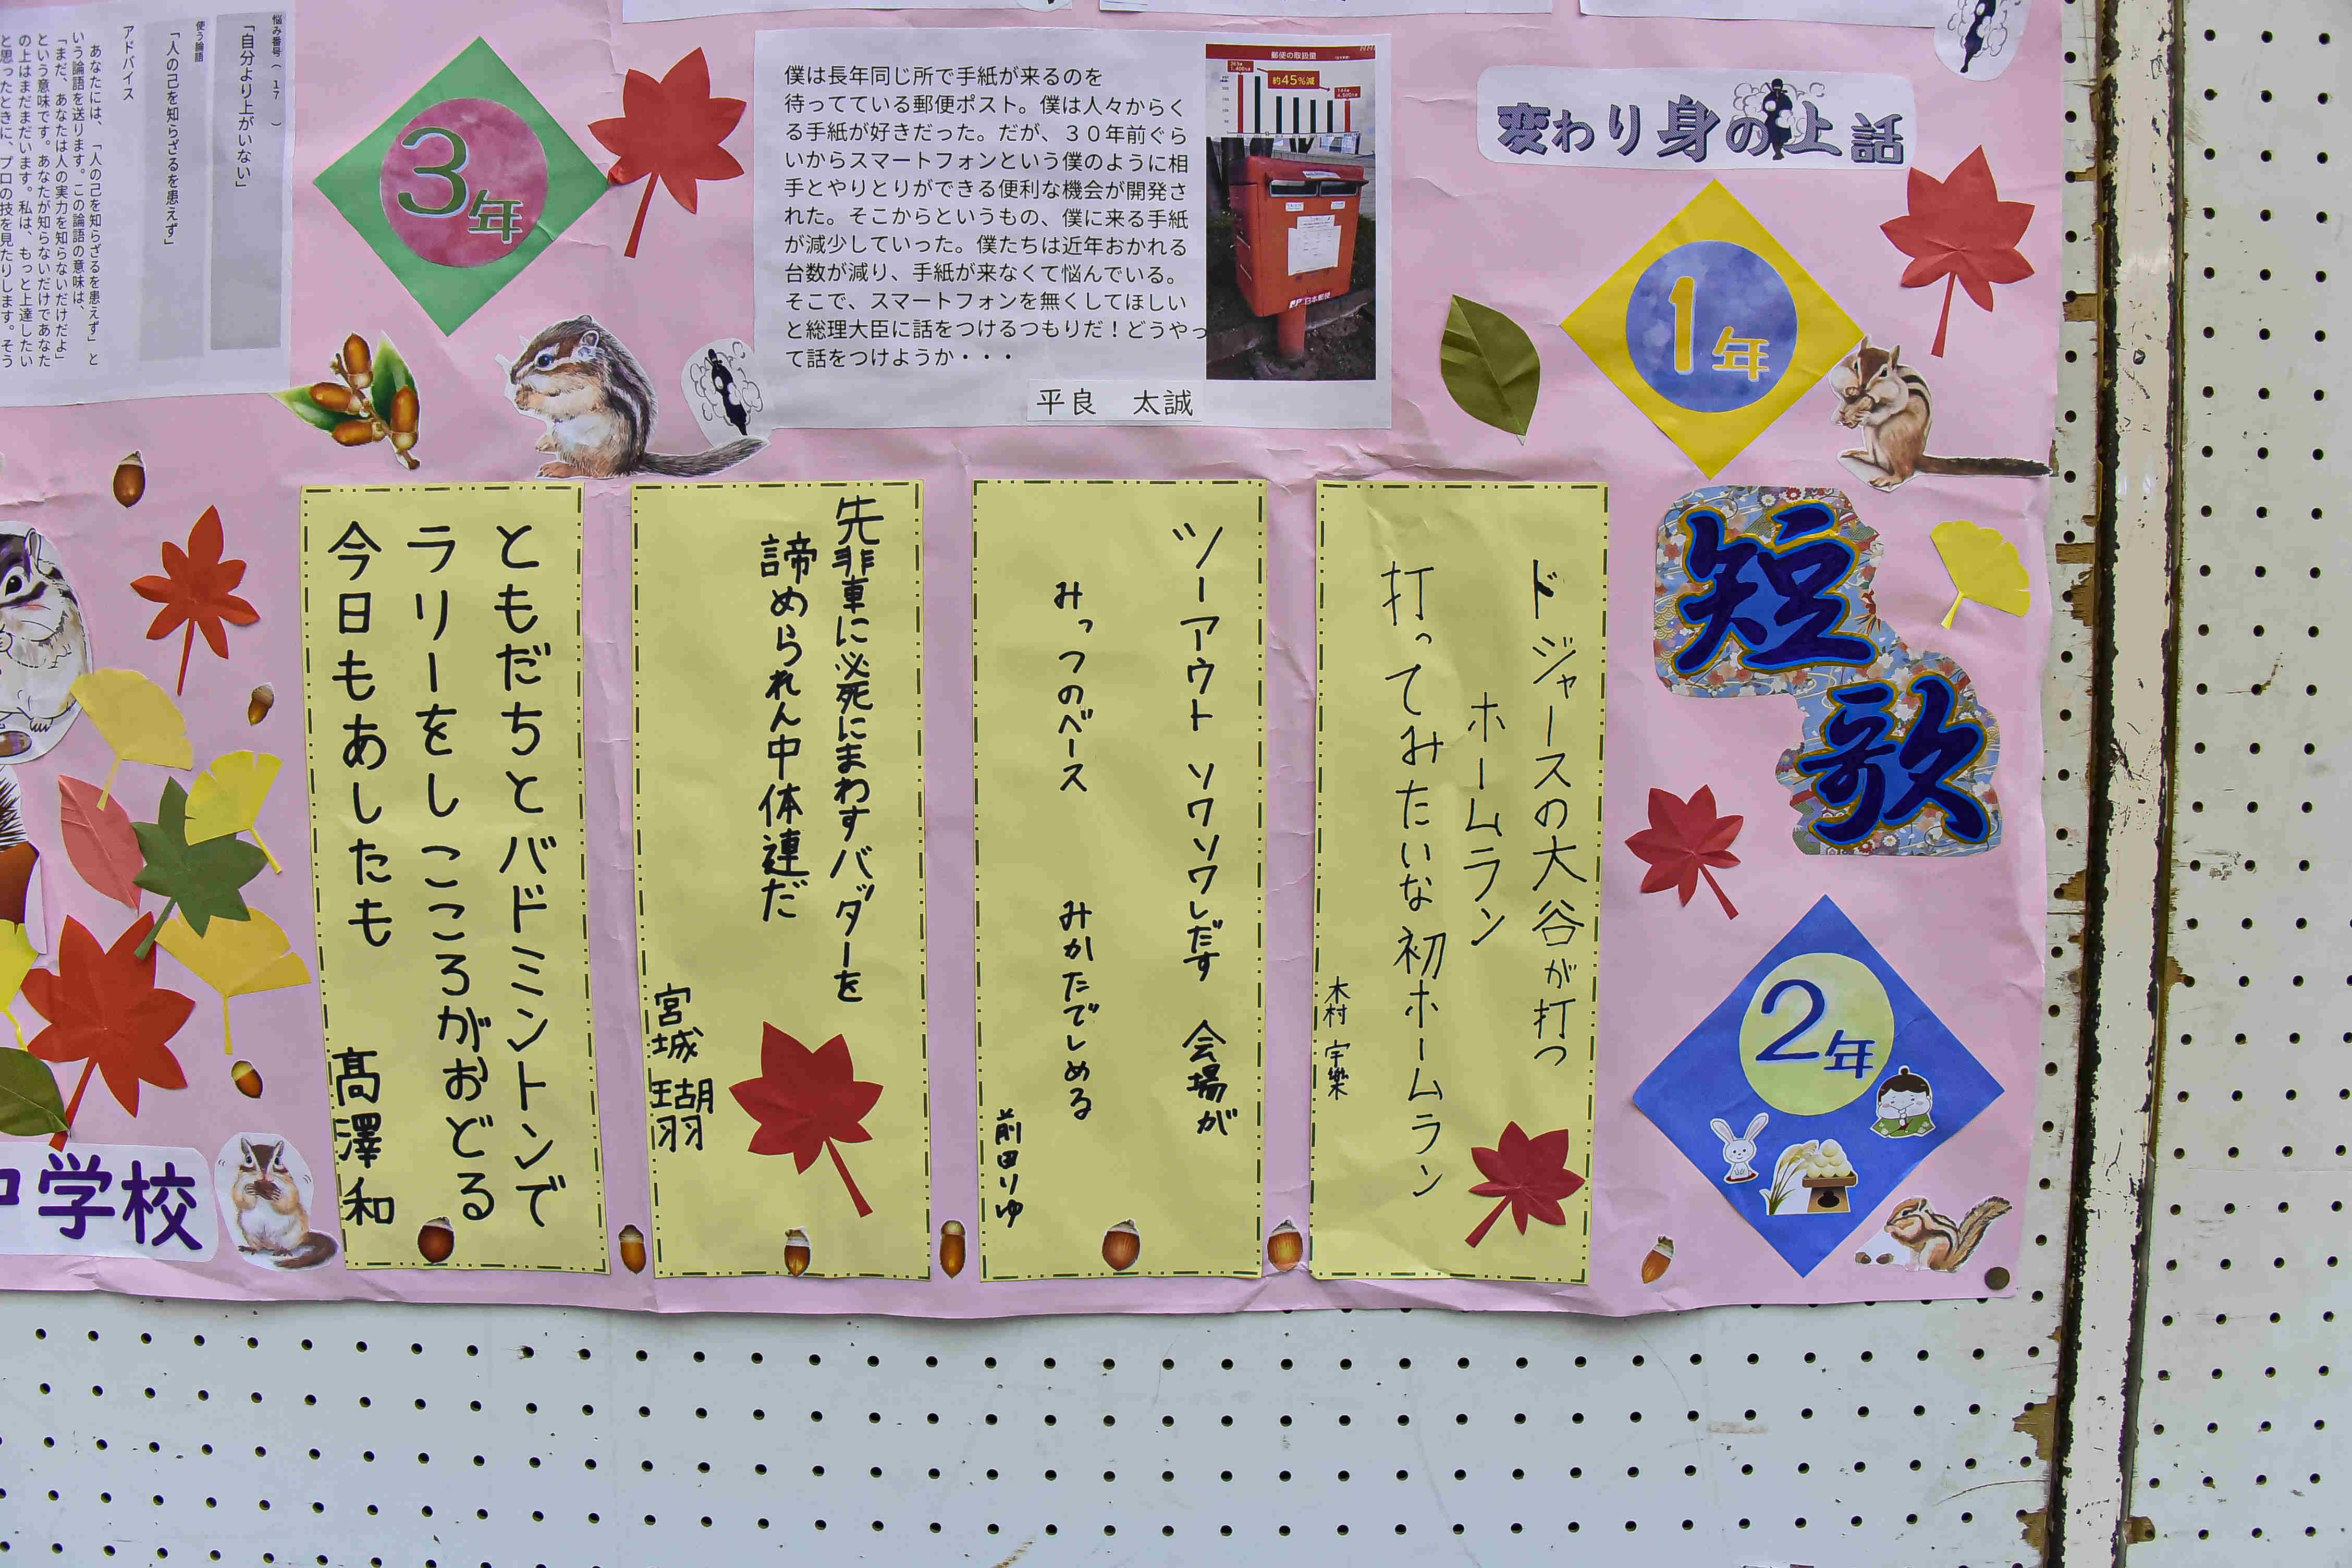 変わり身の上話
1年
僕は長年同じ所で手紙が来るのを
待ってている郵便ポスト。僕は人々からく
る手紙が好きだった。だが、３０年前ぐら
いからスマートフォンという僕のように相
手とやりとりができる便利な機会が開発さ
れた。そこからというもの、僕に来る手紙
が減少していった。僕たちは近年おかれる
台数が減り、手紙が来なくて悩んでいる。
そこで、スマートフォンを無くしてほしい
と総理大臣に話をつけるつもりだ！どうやっ
て話をつけようか・・・
平良　太誠
郵便の取扱量
約45%減
日本郵便
3年
悩み番号（ 17 ）
「自分より上がいない」
使う論語
「人の己を知らざるを患えず」
アドバイス
あなたには、「人の己を知らざるを患えず」と
いう論語を送ります。この論語の意味は、
「まだ、あなたは人の実力を知らないだけだよ」
という意味です。あなたが知らないだけであなた
の上はまだまだいます。私は、もっと上達したい
と思ったときに、プロの技を見たりします。そう
短歌
2年
ドジャースの大谷が打つ
ホームラン
打ってみたいな初ホームラン
木村 宇樂
ツーアウト ソワソワしだす 会場が
みっつのベース みかたでしめる
前田りゆ
先輩に必死にまわすバッターを
諦められん中体連だ
宮城 瑚羽
ともだちとバドミントンで
ラリーをしこころがおどる
今日もあしたも
髙澤 和
中学校